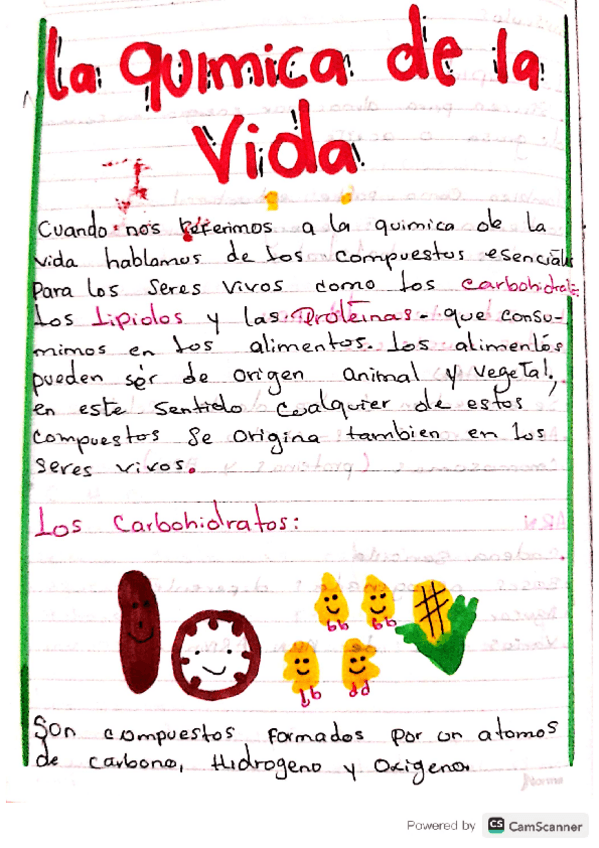 La quimica de la
Vida
Cuando nos referimos a la quimica de la
vida hablamos de los compuestos esenciales
para los seres vivos como los carbohidrat
los lipidos y las proteinas - que consu-
mimos en los alimentos. los alimentos
pueden ser de origen animal y vegetal,
en este sentido cualquier de estos
compuestos se origina tambien en los
seres vivos.
Los carbohidratos:
Son compuestos formados por un atomos
de carbono, Hidrogeno y oxigeno
Norma
Powered by CS CamScanner